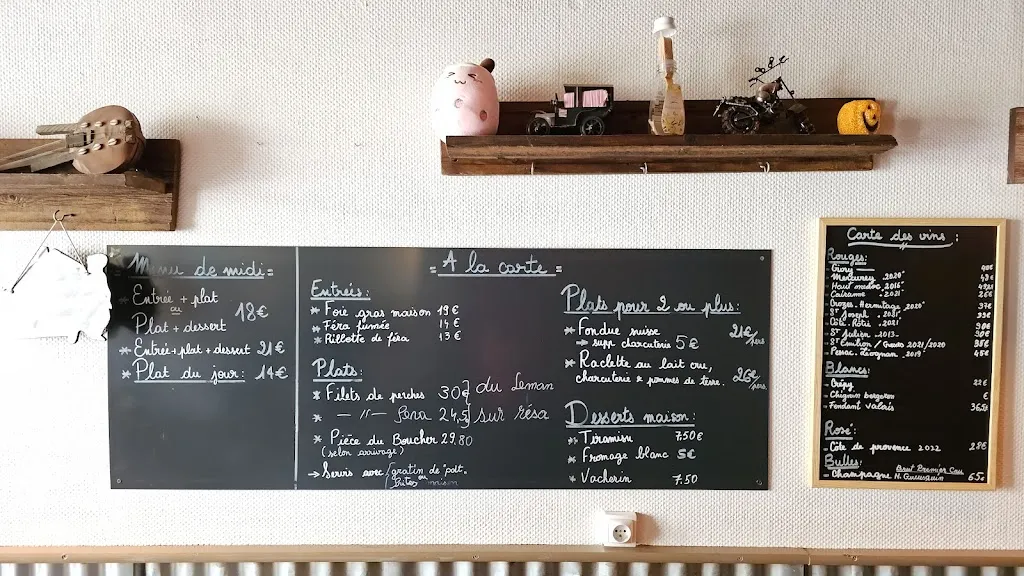 Menu de midi =
* Entrée + plat
ou
Plat + dessert
18€
* Entrée + plat + dessert 21€
* Plat du jour : 14€
= A la carte =
Entrées :
* Foie gras maison 19€
* Féra fumée 14€
* Rillotte de féra 13€
Plats :
* Filets de perches 30€ } du Leman
* — // — féra 24,5 } sur résa
* Pièce du Boucher 29,80
(selon arrivage)
→ Servis avec gratin de "pdt"
ou
frites maison
Plats pour 2 ou plus :
* Fondue suisse 21€/pers
→ supp charcuterie 5€
* Raclette au lait cru,
charcuterie + pommes de terre. 26€/pers.
Desserts maison :
* Tiramisu 7.50€
* Fromage blanc 5€
* Vacherin 7.50
Carte des vins :
Rouges :
- Givry
- Mercurey 2020
- Haut medoc 2016
- Cairanne 2021 26€
- Crozes. Hermitage 2020 37€
- St Joseph 2021
- Côte. Rotie 2021
- St Julien 2013
- St Emilion / 2021/2020
- Pessac. Leognan 2019 45€
Blancs :
- Crépy 22€
- Chignin bergeron
- Fendant Valais 36,5
Rosé :
- Côte de provence 2022 28€
Bulles :
- Champagne Brut Premier Cru 65€